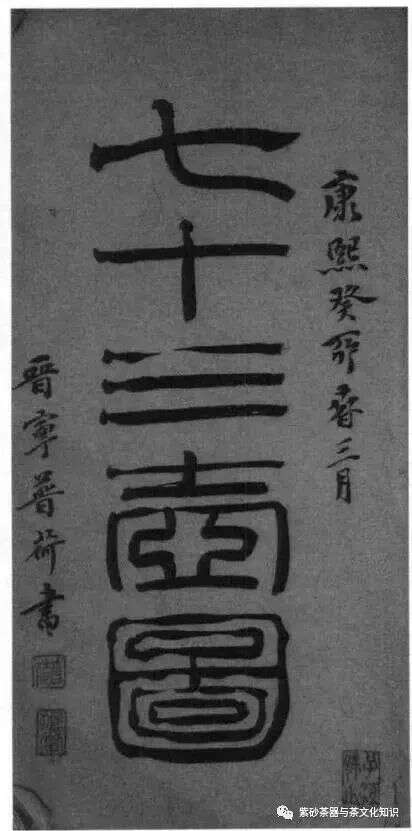 康熙癸卯春三月
七十三壺圖
晋寧普荷書
紫砂茶器与茶文化知识